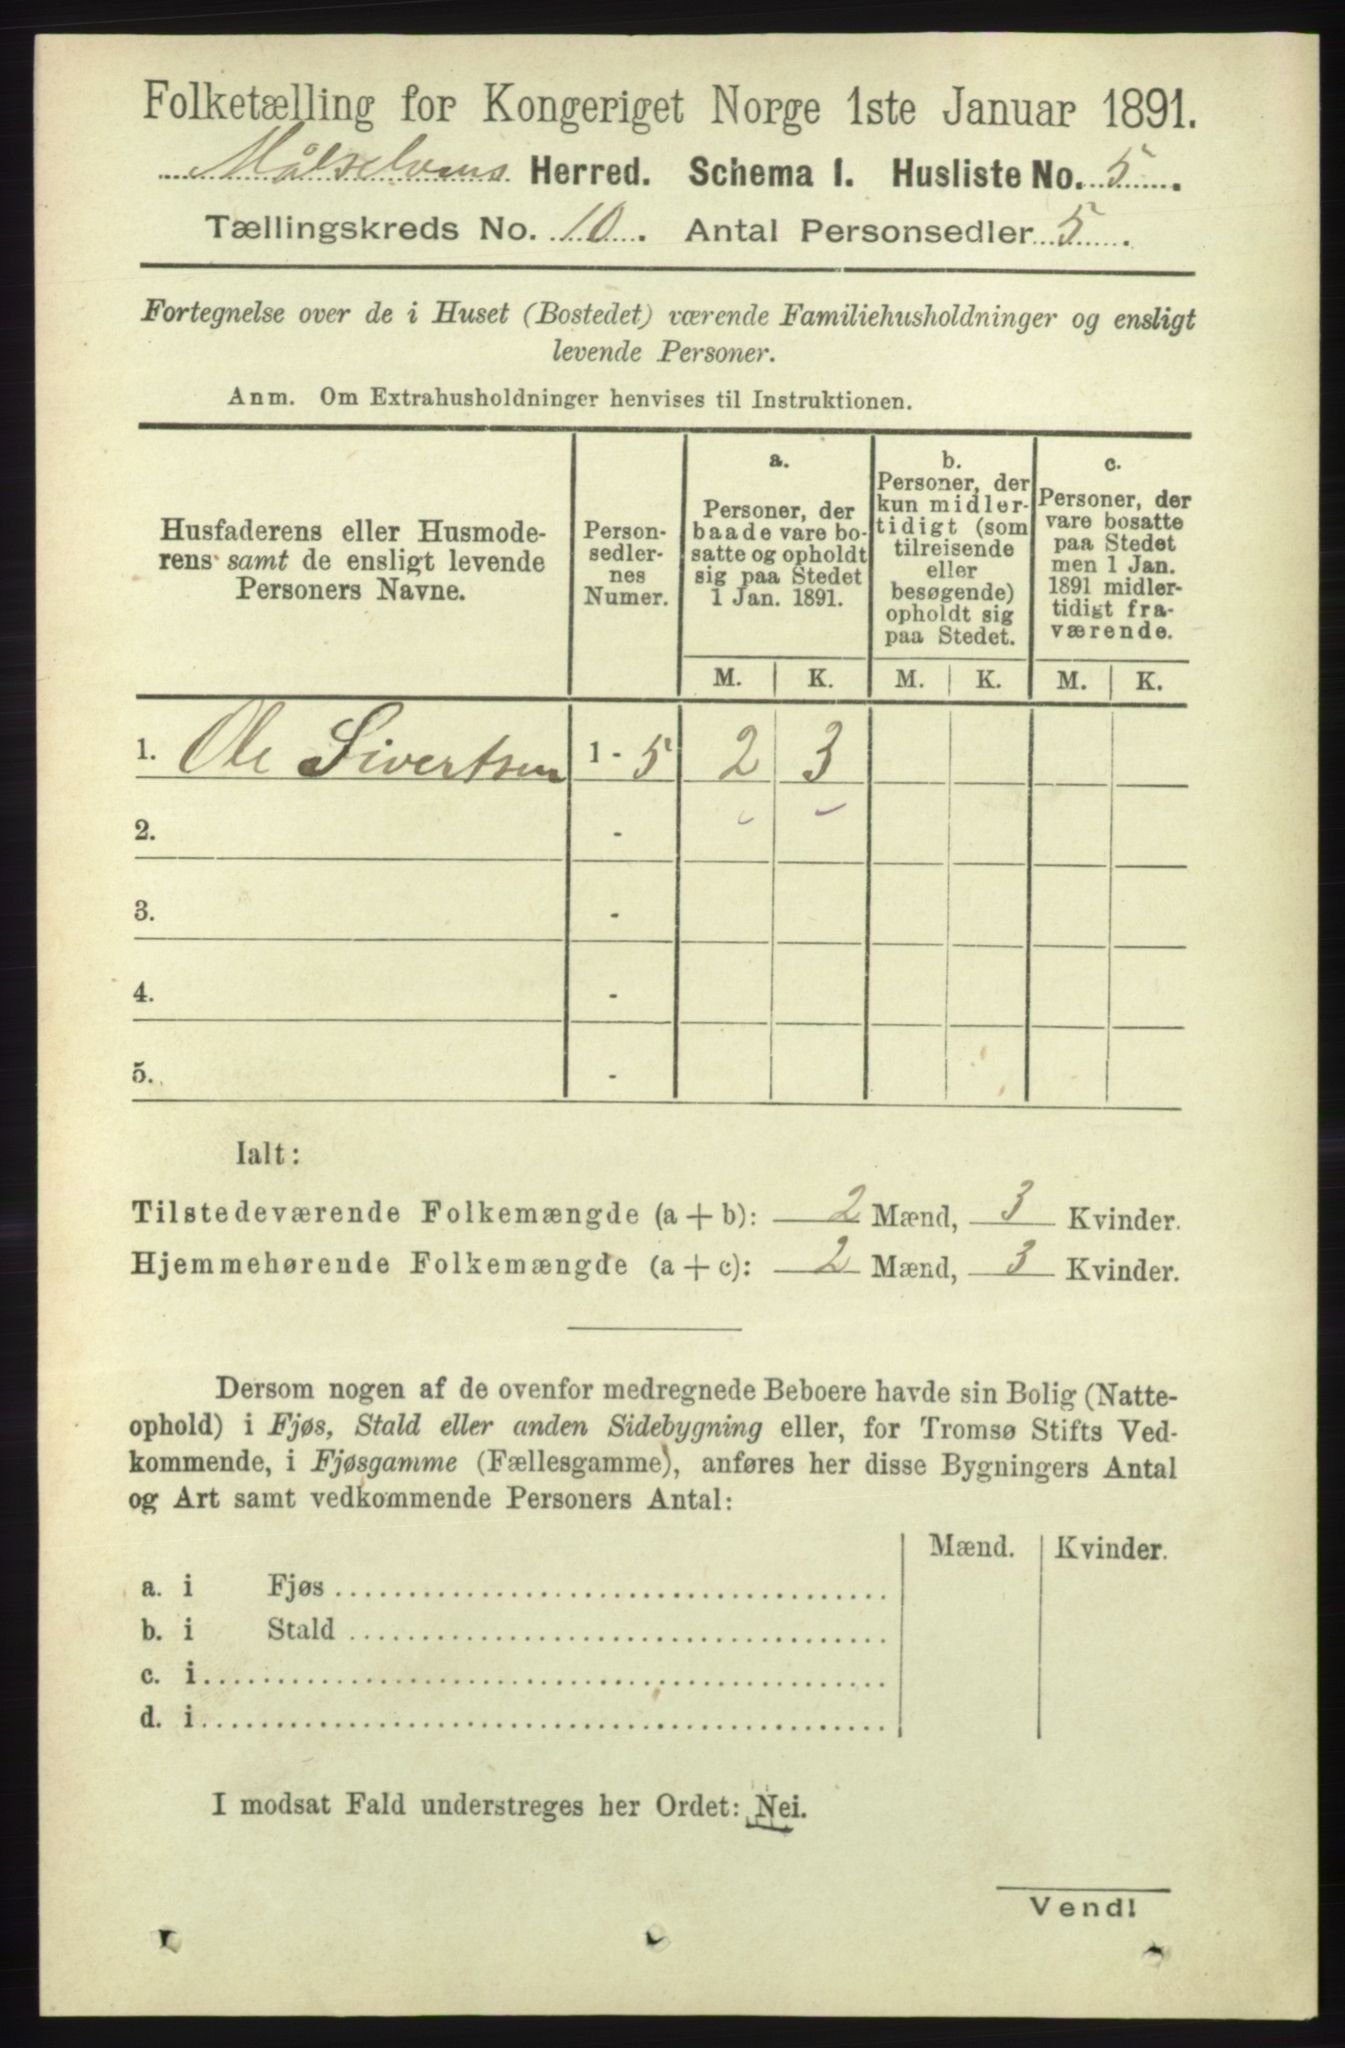 Folketælling for Kongeriget Norge 1ste Januar 1891.
Målselvens Herred. Schema 1. Husliste No. 5.
Tællingskreds No. 10. Antal Personsedler 5.
Fortegnelse over de i Huset (Bostedet) værende Familiehusholdninger og ensligt
levende Personer.
Anm. Om Extrahusholdninger henvises til Instruktionen.
Husfaderens eller Husmode-
rens samt de ensligt levende
Personers Navne.
Person-
sedler-
nes
Numer.
a.
Personer, der
baade vare bo-
satte og opholdt
sig paa Stedet
1 Jan. 1891.
b.
Personer, der
kun midler-
tidigt (som
tilreisende
eller
besøgende)
opholdt sig
paa Stedet.
c.
Personer, der
vare bosatte
paa Stedet
men 1 Jan.
1891 midler-
tidigt fra-
værende.
M. K. M. K. M. K.
1. Ole Sivertsen 1 - 5 2 3
2. -
3. -
4. -
5. -
Ialt:
Tilstedeværende Folkemængde (a + b): 2 Mænd, 3 Kvinder.
Hjemmehørende Folkemængde (a + c): 2 Mænd, 3 Kvinder.
Dersom nogen af de ovenfor medregnede Beboere havde sin Bolig (Natte-
ophold) i Fjøs, Stald eller anden Sidebygning eller, for Tromsø Stifts Ved-
kommende, i Fjøsgamme (Fællesgamme), anføres her disse Bygningers Antal
og Art samt vedkommende Personers Antal:
Mænd. Kvinder.
a. i Fjøs
b. i Stald
c. i
d. i
I modsat Fald understreges her Ordet: Nei.
Vend!